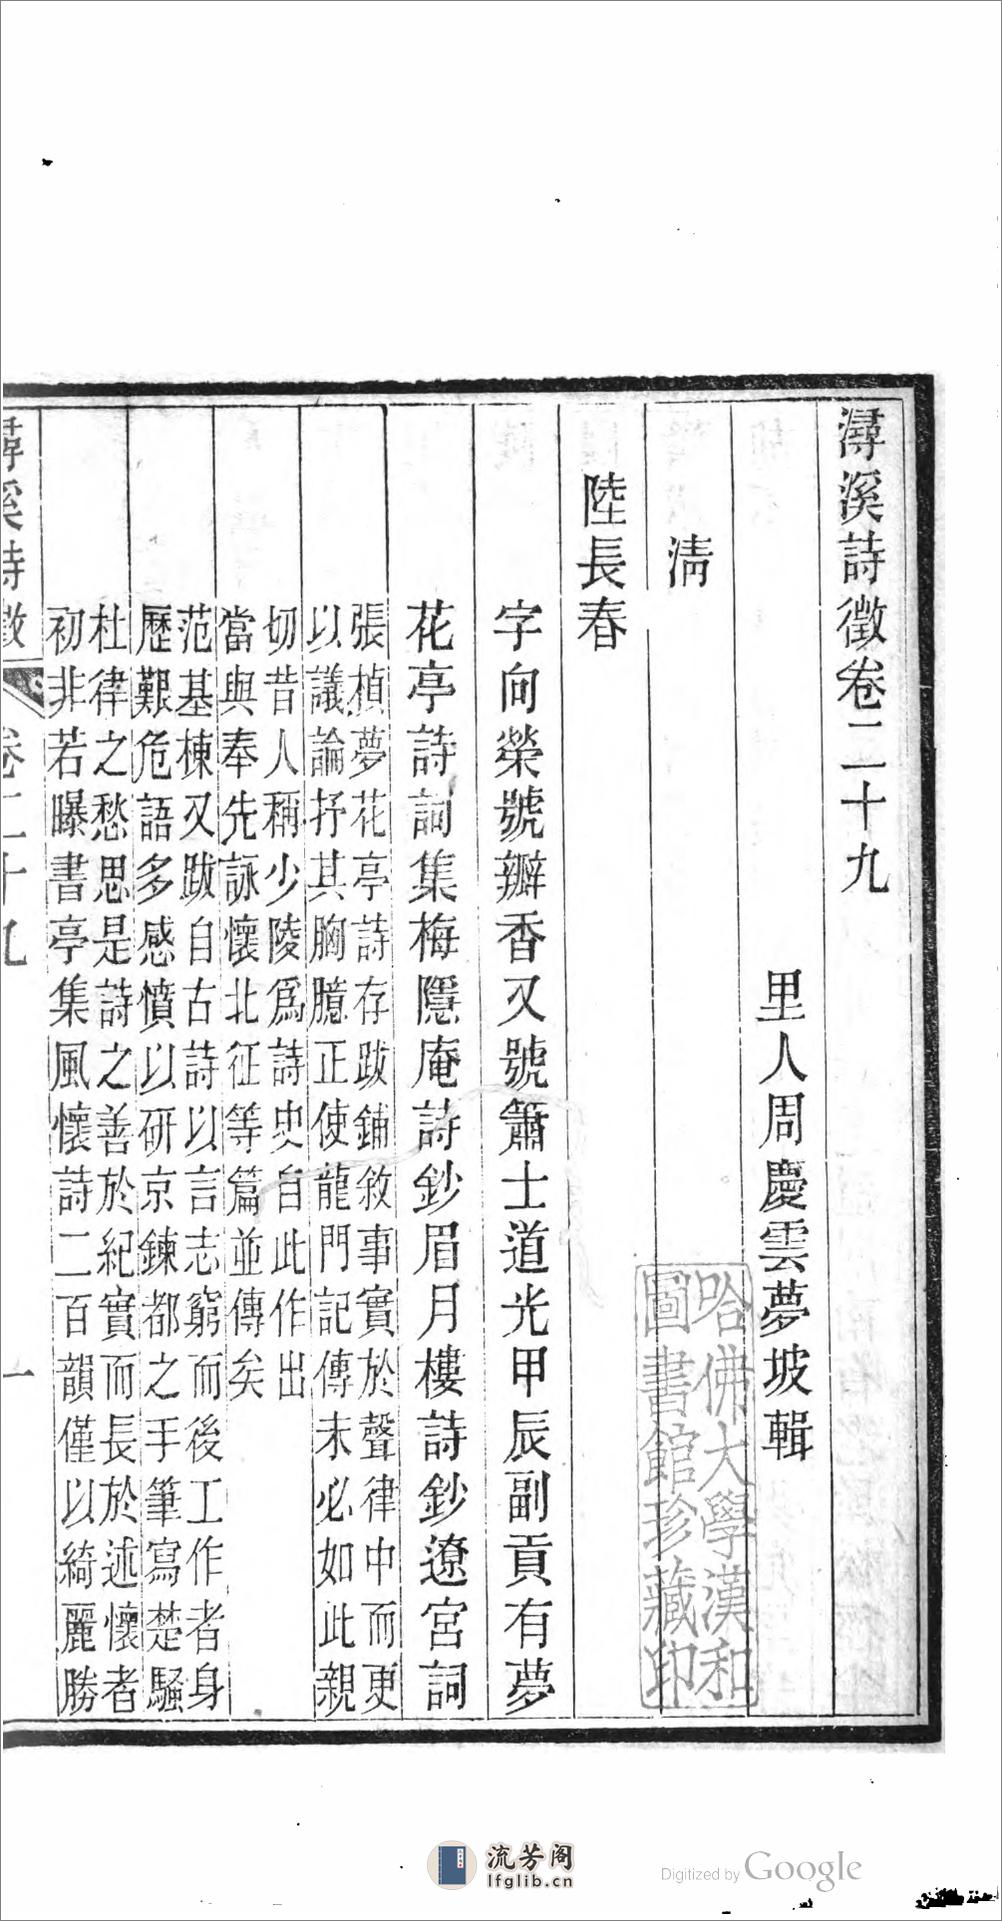 潯溪詩徵卷二十九
里人周慶雲夢坡輯
清
陸長春
字向榮號瓣香又號簫士道光甲辰副貢有夢
花亭詩詞集梅隱庵詩鈔眉月樓詩鈔遼宮詞
張楨夢花亭詩存跋鋪敘事實於聲律中而更
以議論抒其胸臆正使龍門記傳未必如此親
切昔人稱少陵爲詩史自此作出
當與奉先詠懷北征等篇並傳矣
范基棟又跋自古詩以言志窮而後工作者身
歷艱危語多感憤以研京鍊都之手筆寫楚騷
杜律之愁思是詩之善於紀實而長於述懷者
初非若曝書亭集風懷詩二百韻僅以綺麗勝
潯溪詩徵
卷二十九
一
哈佛大學漢和
圖書館珍藏印
流芳阁
lfglib.cn
Digitized by Google